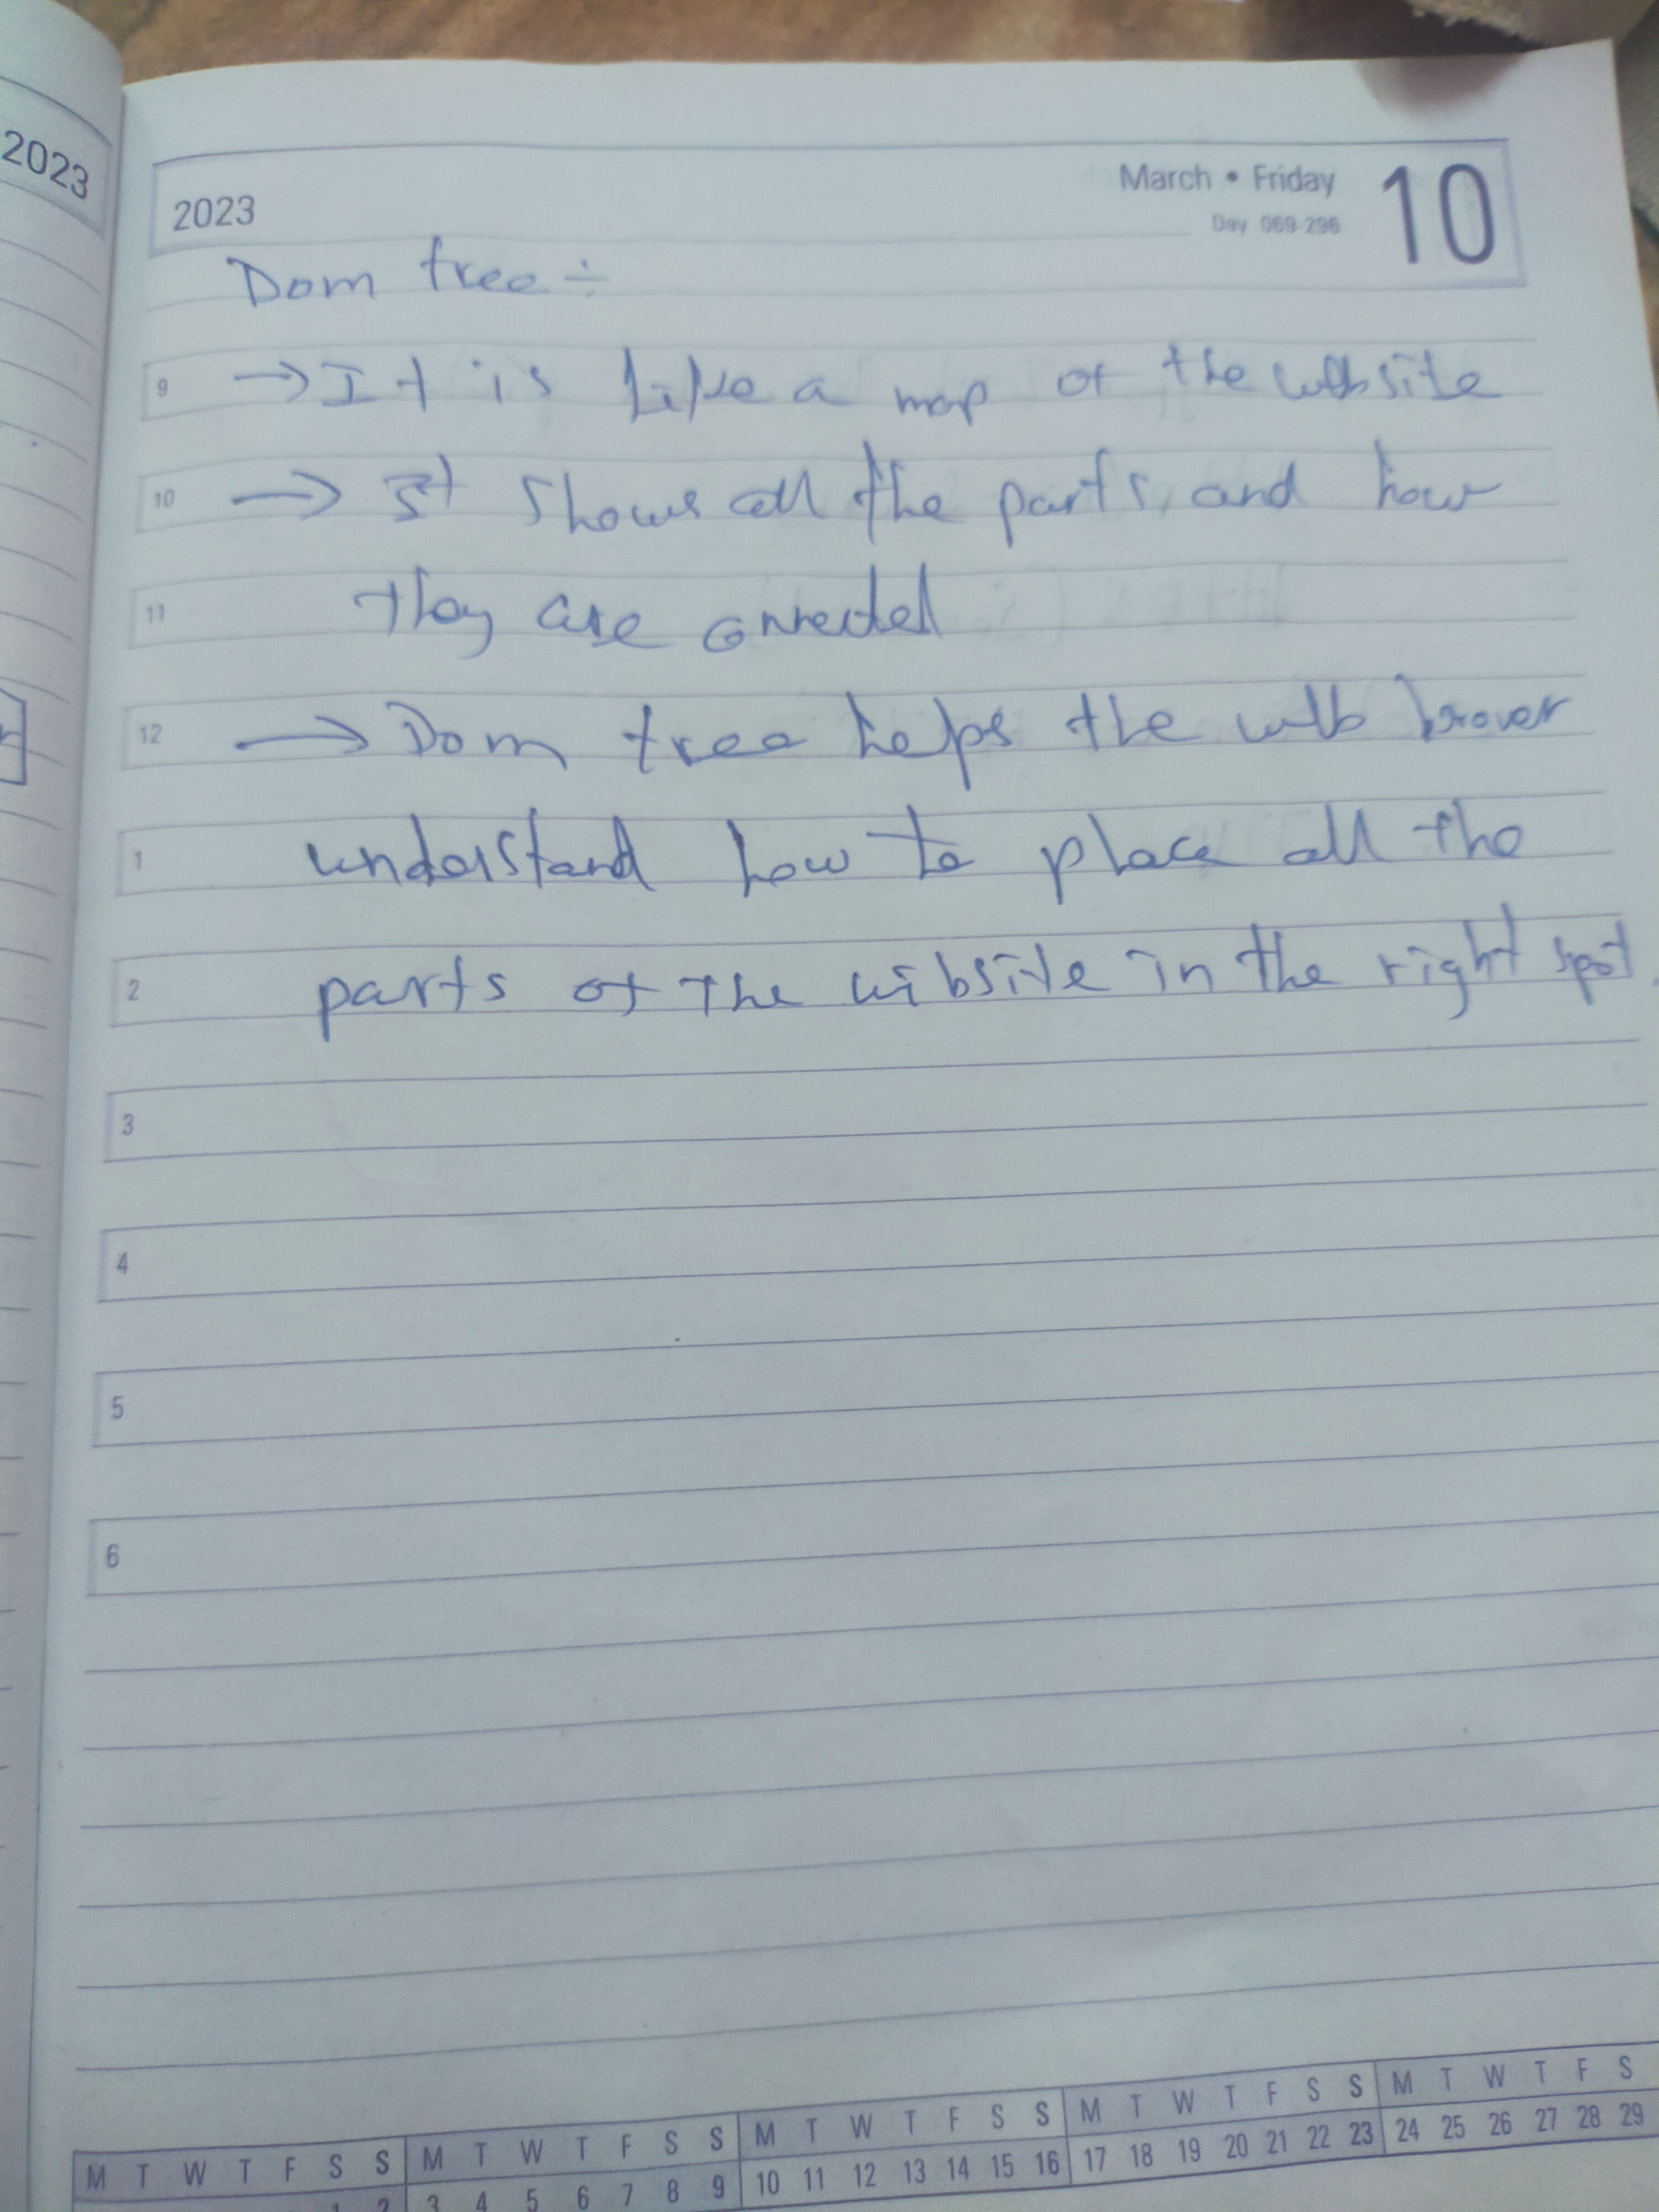 2023
2023
March • Friday 10
Day 069-296
Dom tree ÷
9 → It is like a map of the website
10 → It shows all the parts, and how
11 they are connected
12 → Dom tree helps the web brower
1 understand how to place all the
2 parts of the wibsite in the right spot.
3
4
5
6
M T W T F S S M T W T F S S M T W T F S S M T W T F S S M T W T F S
1 2 3 4 5 6 7 8 9 10 11 12 13 14 15 16 17 18 19 20 21 22 23 24 25 26 27 28 29